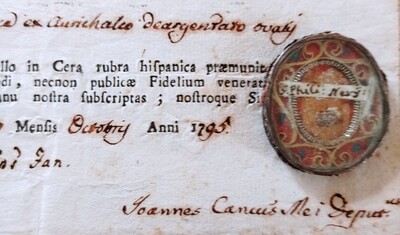 ex Aurichalco deargentato ovalis
llo in Cera rubra hispanica præmunit
di, necnon publicæ Fidelium venerati
nu nostra subscriptas; nostroque Si
Mensis Octobris Anni 1795.
S. Philip: Nerij
Jan.
Joannes Mei Deput.us